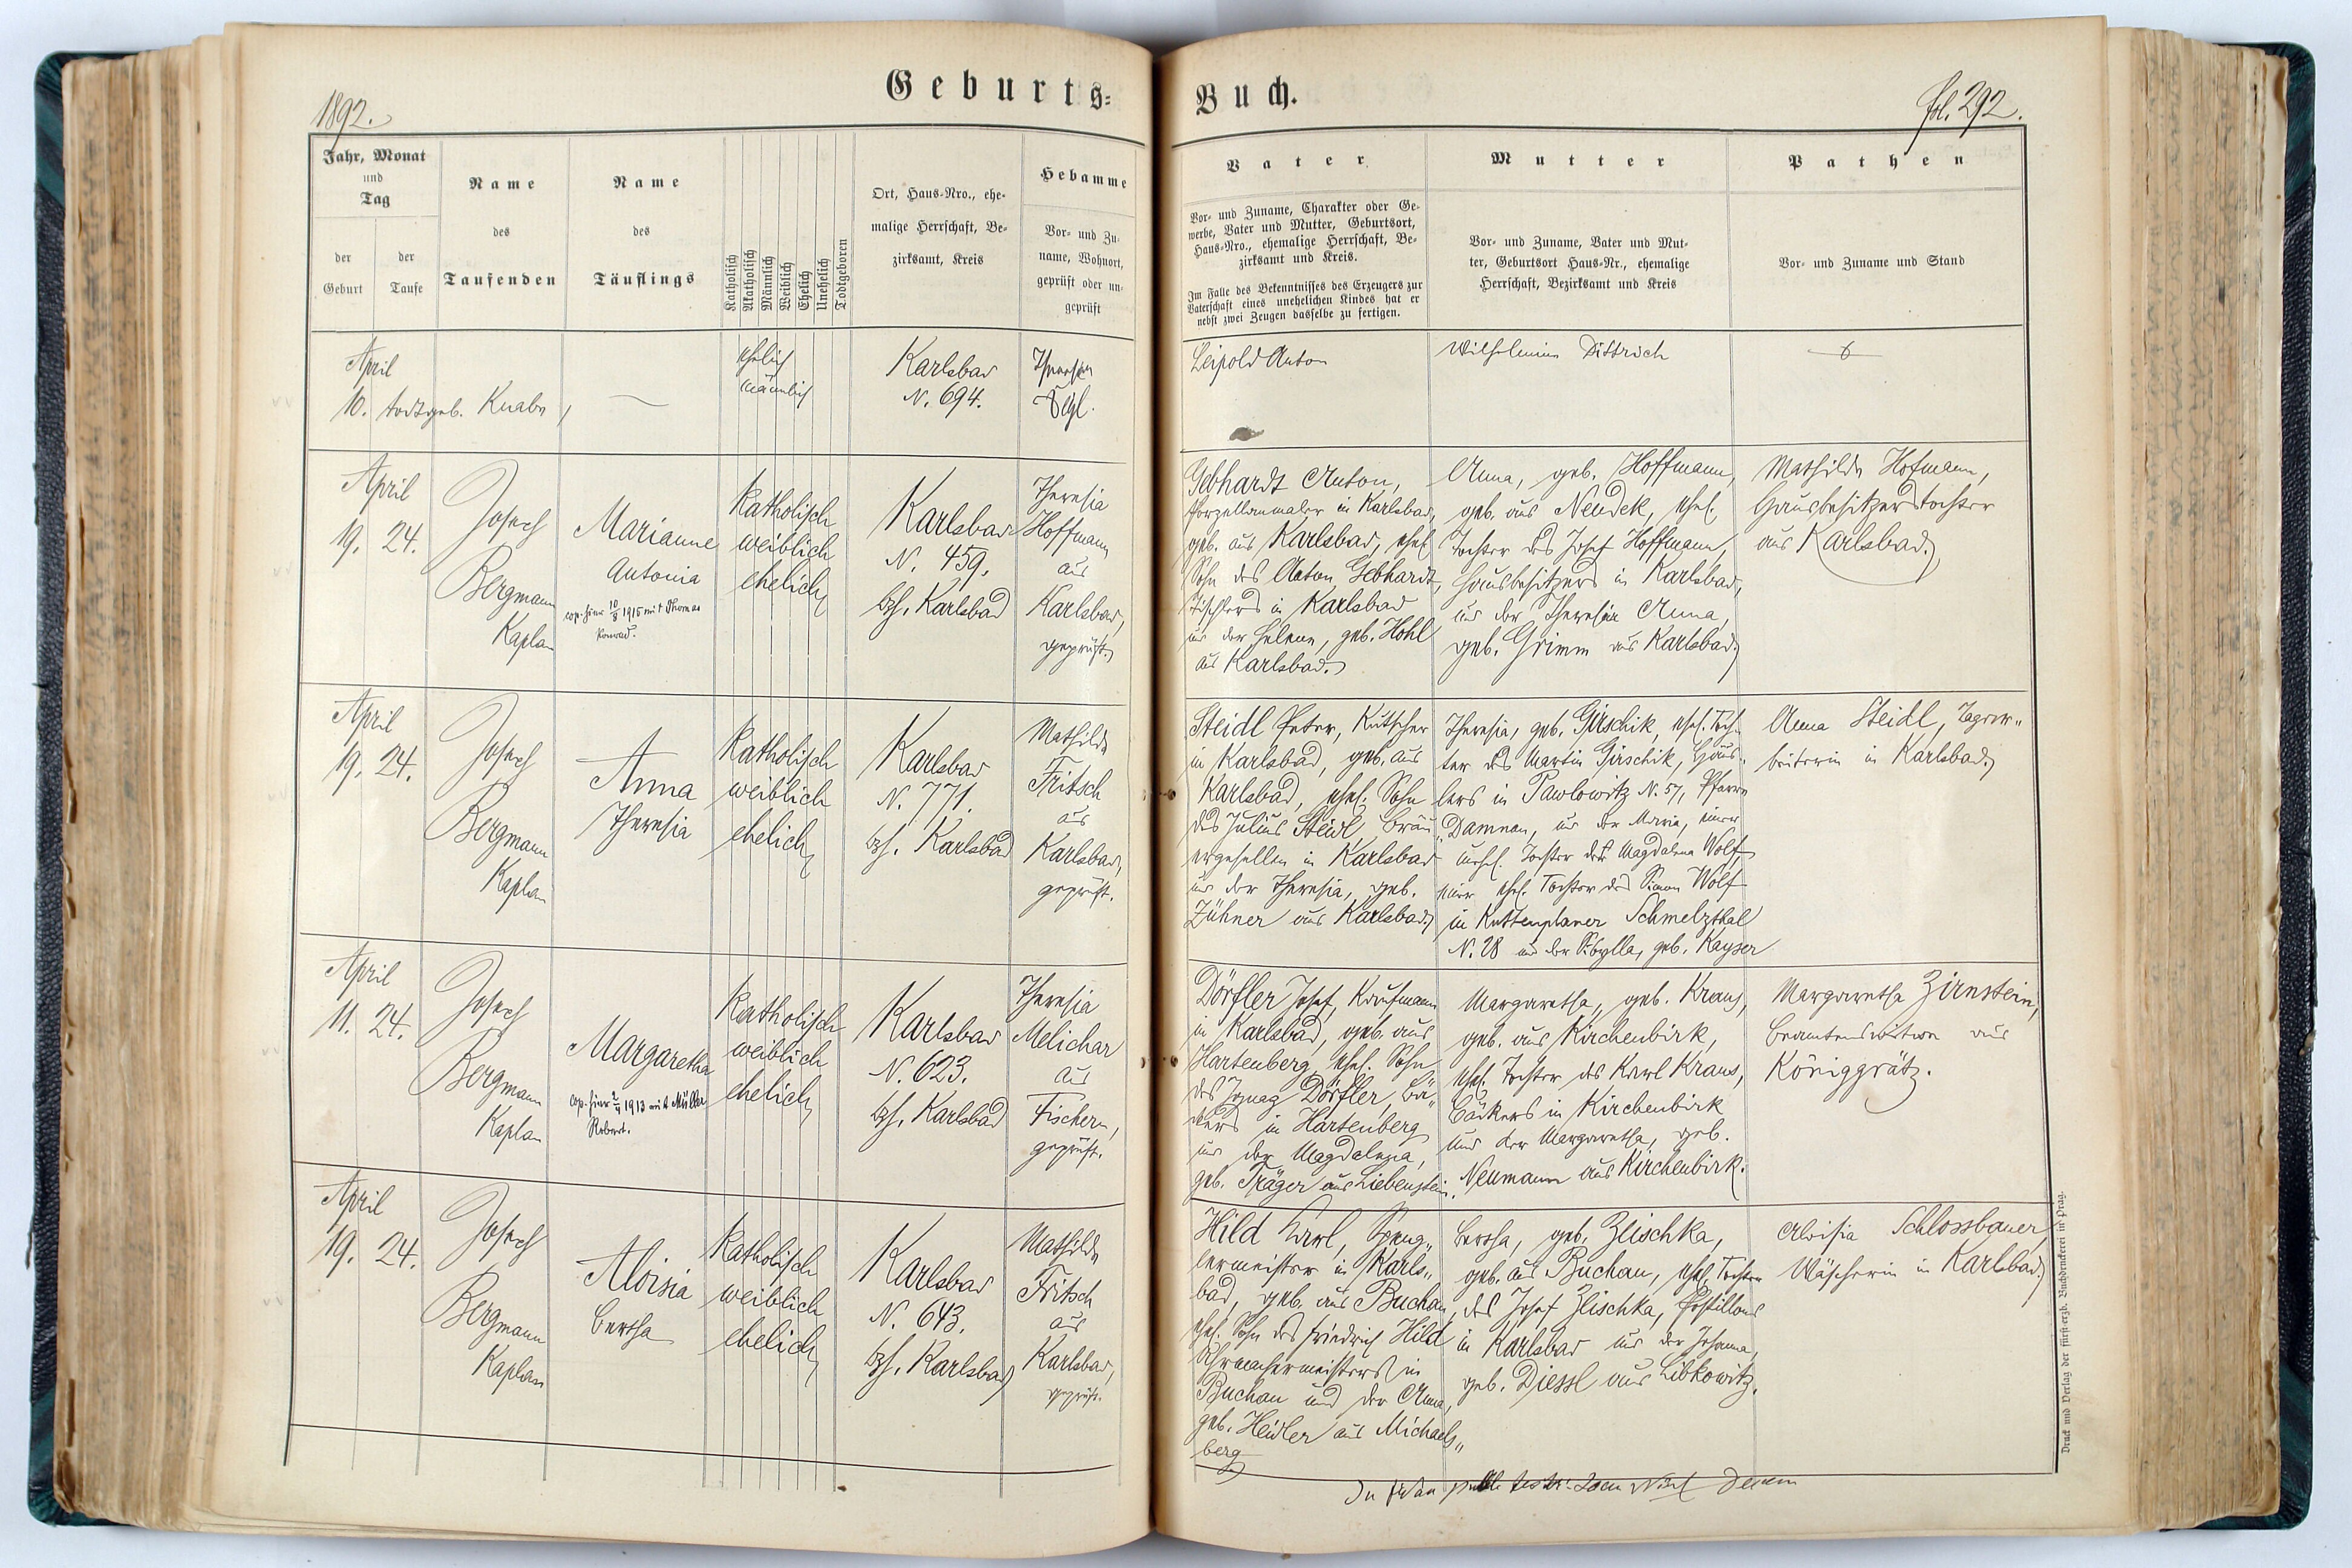 Geburts=
1892.
Jahr, Monat
und
Tag
der
Geburt
der
Taufe
Name
des
Taufenden
Name
des
Täuflings
Katholisch
Akatholisch
Männlich
Weiblich
Ehelich
Unehelich
Todtgeboren
Ort, Haus-Nro., ehe-
malige Herrschaft, Be-
zirksamt, Kreis
Hebamme
Vor- und Zu-
name, Wohnort,
geprüft oder un-
geprüft
April
10. todtgeb. Knabe
ehelich
männlich
Karlsbad
N. 694.
Theresia
April
19. 24.
Josef
Bergmann
Kaplan
Marianne
Antonia
cop. hier 10/8 1915 mit Thomas
Konrad.
Katholisch
weiblich
ehelich
Karlsbad
N. 459.
Bzh. Karlsbad
Theresia
Hoffmann
aus
Karlsbad,
geprüft.
April
19. 24.
Josef
Bergmann
Kaplan
Anna
Theresia
Katholisch
weiblich
ehelich
Karlsbad
N. 771.
Bzh. Karlsbad
Mathilde
Fritsch
aus
Karlsbad,
geprüft.
April
11. 24.
Josef
Bergmann
Kaplan
Margaretha
cop. hier 1913 mit Müller
Robert.
Katholisch
weiblich
ehelich
Karlsbad
N. 623.
Bzh. Karlsbad
Theresia
Melichar
aus
Fischern,
geprüft.
April
19. 24.
Josef
Bergmann
Kaplan
Aloisia
Bertha
Katholisch
weiblich
ehelich
Karlsbad
N. 643.
Bzh. Karlsbad
Mathilde
Fritsch
aus
Karlsbad,
geprüft.
Buch.
fol. 292.
Vater
Vor- und Zuname, Charakter oder Ge-
werbe, Vater und Mutter, Geburtsort,
Haus-Nro., ehemalige Herrschaft, Be-
zirksamt und Kreis.
Im Falle des Bekenntnisses des Erzeugers zur
Vaterschaft eines unehelichen Kindes hat er
nebst zwei Zeugen dasselbe zu fertigen.
Mutter
Vor- und Zuname, Vater und Mut-
ter, Geburtsort Haus-Nr., ehemalige
Herrschaft, Bezirksamt und Kreis
Pathen
Vor- und Zuname und Stand
Leipold Anton
Wilhelmine Dittrich
Gebhardt Anton,
Porzellanmaler in Karlsbad,
geb. aus Karlsbad, ehel.
Sohn des Anton Gebhardt,
Tischlers in Karlsbad
und der Helene, geb. Hohl
aus Karlsbad.
Anna, geb. Hoffmann,
geb. aus Neudek, ehel.
Tochter des Josef Hoffmann,
Hausbesitzers in Karlsbad,
und der Theresia Anna,
geb. Grimm aus Karlsbad.
Mathilde Hofmann,
Hausbesitzerstochter
aus Karlsbad.
Steidl Peter, Kutscher
in Karlsbad, geb. aus
Karlsbad, ehel. Sohn
des Julius Steidl, Bräu„
ergesellen in Karlsbad
und der Theresia, geb.
Zühner aus Karlsbad.
Theresia, geb. Girschik, ehel. Toch„
ter des Martin Girschik, Häus„
lers in Pawlowitz N. 57, Pfarre
Damnau, und der Maria, einer
unehel. Tochter der Magdalena Wolf,
einer ehel. Tochter des Simon Wolf
in Kuttenplaner Schmelzthal
N. 28 und der Sibylla, geb. Kayser
Anna Steidl, Tagear„
beiterin in Karlsbad.
Dörfler Josef, Kaufmann
in Karlsbad, geb. aus
Hartenberg, ehel. Sohn
des Ignaz Dörfler, Bä„
ckers in Hartenberg
und der Magdalena,
geb. Träger aus Liebenstein.
Margaretha, geb. Kraus,
geb. aus Kirchenbirk,
ehel. Tochter des Karl Kraus,
Bäckers in Kirchenbirk
und der Margaretha, geb.
Neumann aus Kirchenbirk.
Margaretha Zirnstein,
Beamtenswitwe aus
Königgrätz.
Hild Karl, Speng„
lermeister in Karls„
bad, geb. aus Buchau,
ehel. Sohn des Friedrich Hild
Uhrmachermeisters in
Buchau und der Anna,
geb. Heidler aus Michaels„
berg
Bertha, geb. Zlischka,
geb. aus Buchau, ehel. Tochter
des Josef Zlischka, Postillons
in Karlsbad und der Johanna,
geb. Diessl aus Libkowitz.
Aloisia Schlossbauer,
Wäscherin in Karlsbad.
Druck und Verlag der fürst-erzb. Buchdruckerei in Prag.